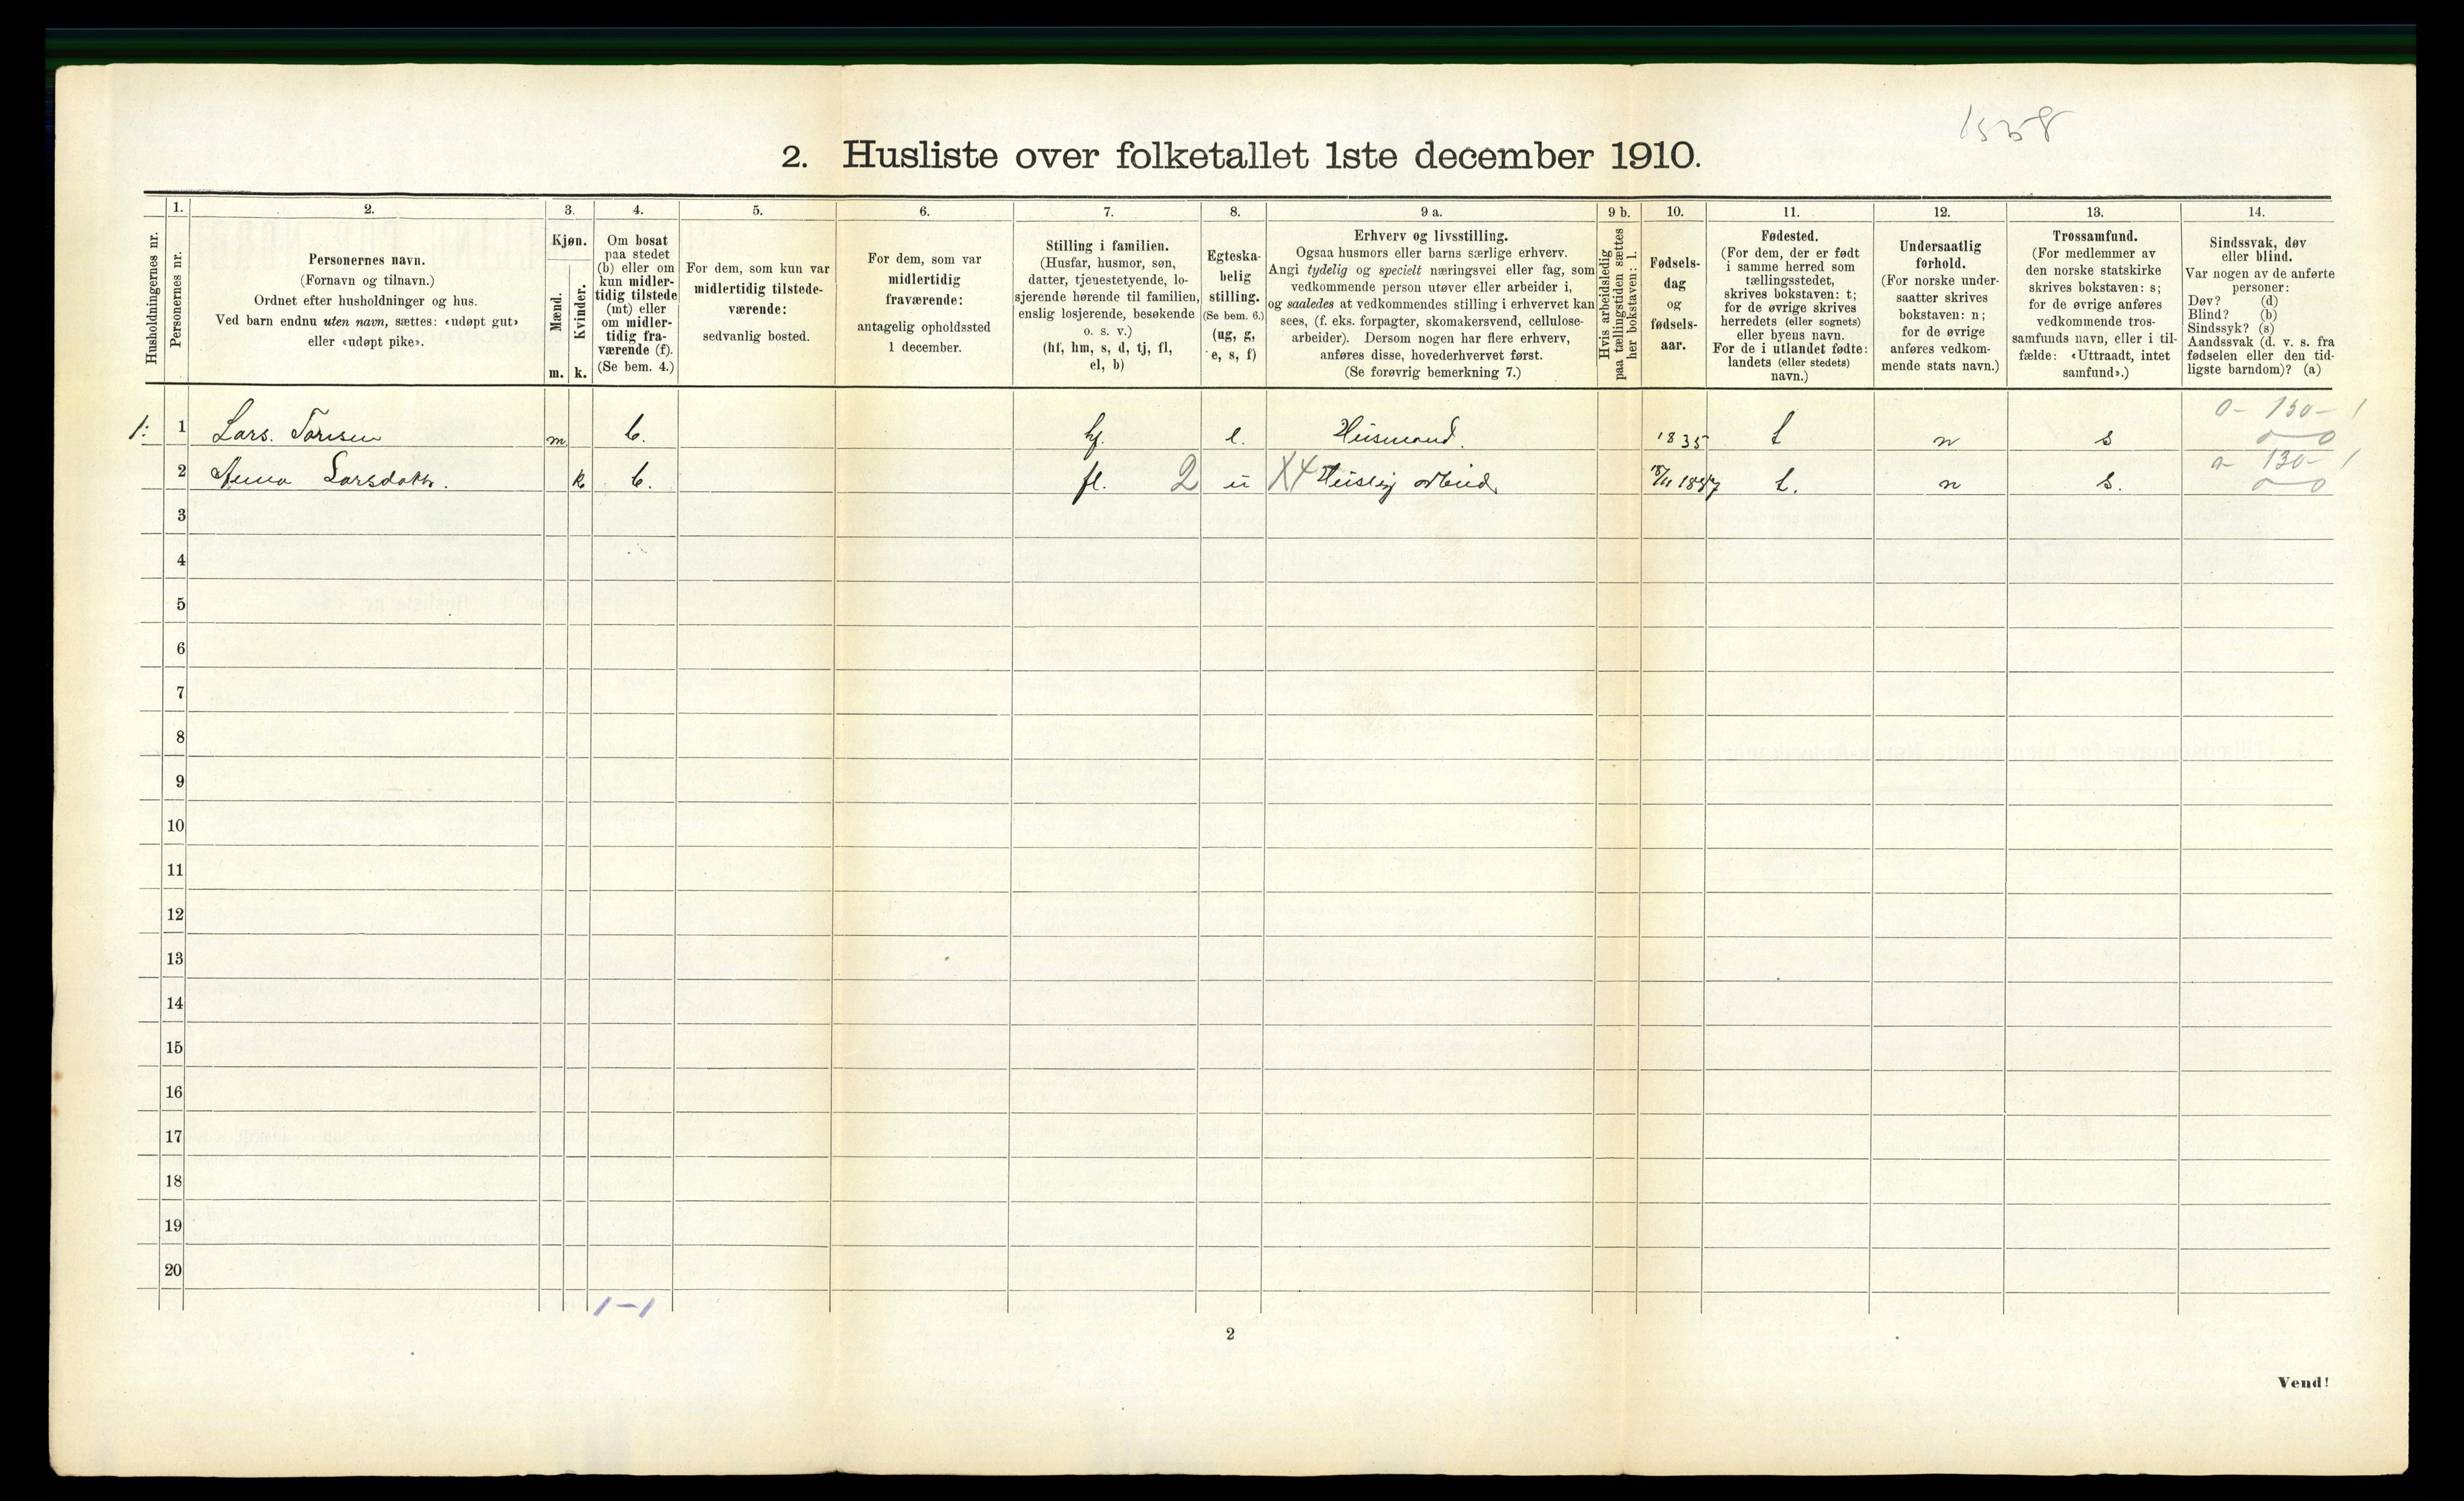 1558
2. Husliste over folketallet 1ste december 1910.
1. 2. 3. 4. 5. 6. 7. 8. 9 a. 9 b. 10. 11. 12. 13. 14.
Husholdningernes nr.
Personernes nr.
Personernes navn.
(Fornavn og tilnavn.)
Ordnet efter husholdninger og hus.
Ved barn endnu uten navn, sættes: «udøpt gut»
eller «udøpt pike».
Kjøn.
Mænd.
Kvinder.
m. k.
Om bosat
paa stedet
(b) eller om
kun midler-
tidig tilstede
(mt) eller
om midler-
tidig fra-
værende (f).
(Se bem. 4.)
For dem, som kun var
midlertidig tilstede-
værende:
sedvanlig bosted.
For dem, som var
midlertidig
fraværende:
antagelig opholdssted
1 december.
Stilling i familien.
(Husfar, husmor, søn,
datter, tjenestetyende, lo-
sjerende hørende til familien,
enslig losjerende, besøkende
o. s. v.)
(hf, hm, s, d, tj, fl,
el, b)
Egteska-
belig
stilling.
(Se bem. 6.)
(ug, g,
e, s, f)
Erhverv og livsstilling.
Ogsaa husmors eller barns særlige erhverv.
Angi tydelig og specielt næringsvei eller fag, som
vedkommende person utøver eller arbeider i,
og saaledes at vedkommendes stilling i erhvervet kan
sees, (f. eks. forpagter, skomakersvend, cellulose-
arbeider). Dersom nogen har flere erhverv,
anføres disse, hovederhvervet først.
(Se forøvrig bemerkning 7.)
Hvis arbeidsledig
paa tællingstiden sættes
her bokstaven: l.
Fødsels-
dag
og
fødsels-
aar.
Fødested.
(For dem, der er født
i samme herred som
tællingsstedet,
skrives bokstaven: t;
for de øvrige skrives
herredets (eller sognets)
eller byens navn.
For de i utlandet fødte:
landets (eller stedets)
navn.)
Undersaatlig
forhold.
(For norske under-
saatter skrives
bokstaven: n;
for de øvrige
anføres vedkom-
mende stats navn.)
Trossamfund.
(For medlemmer av
den norske statskirke
skrives bokstaven: s;
for de øvrige anføres
vedkommende tros-
samfunds navn, eller i til-
fælde: «Uttraadt, intet
samfund».)
Sindssvak, døv
eller blind.
Var nogen av de anførte
personer:
Døv? (d)
Blind? (b)
Sindssyk? (s)
Aandssvak (d. v. s. fra
fødselen eller den tid-
ligste barndom)? (a)
0- 130- 1
1: 1 Lars. m b. hf. e. Husmand. 1835 t n s 0 0
0- 130- 1
2 Anna Larsdatter. k b. fl. 2 u X4 Huslig arbeid t. n s. 0 0
3
4
5
6
7
8
9
10
11
12
13
14
15
16
17
18
19
20
1-1
2
Vend!